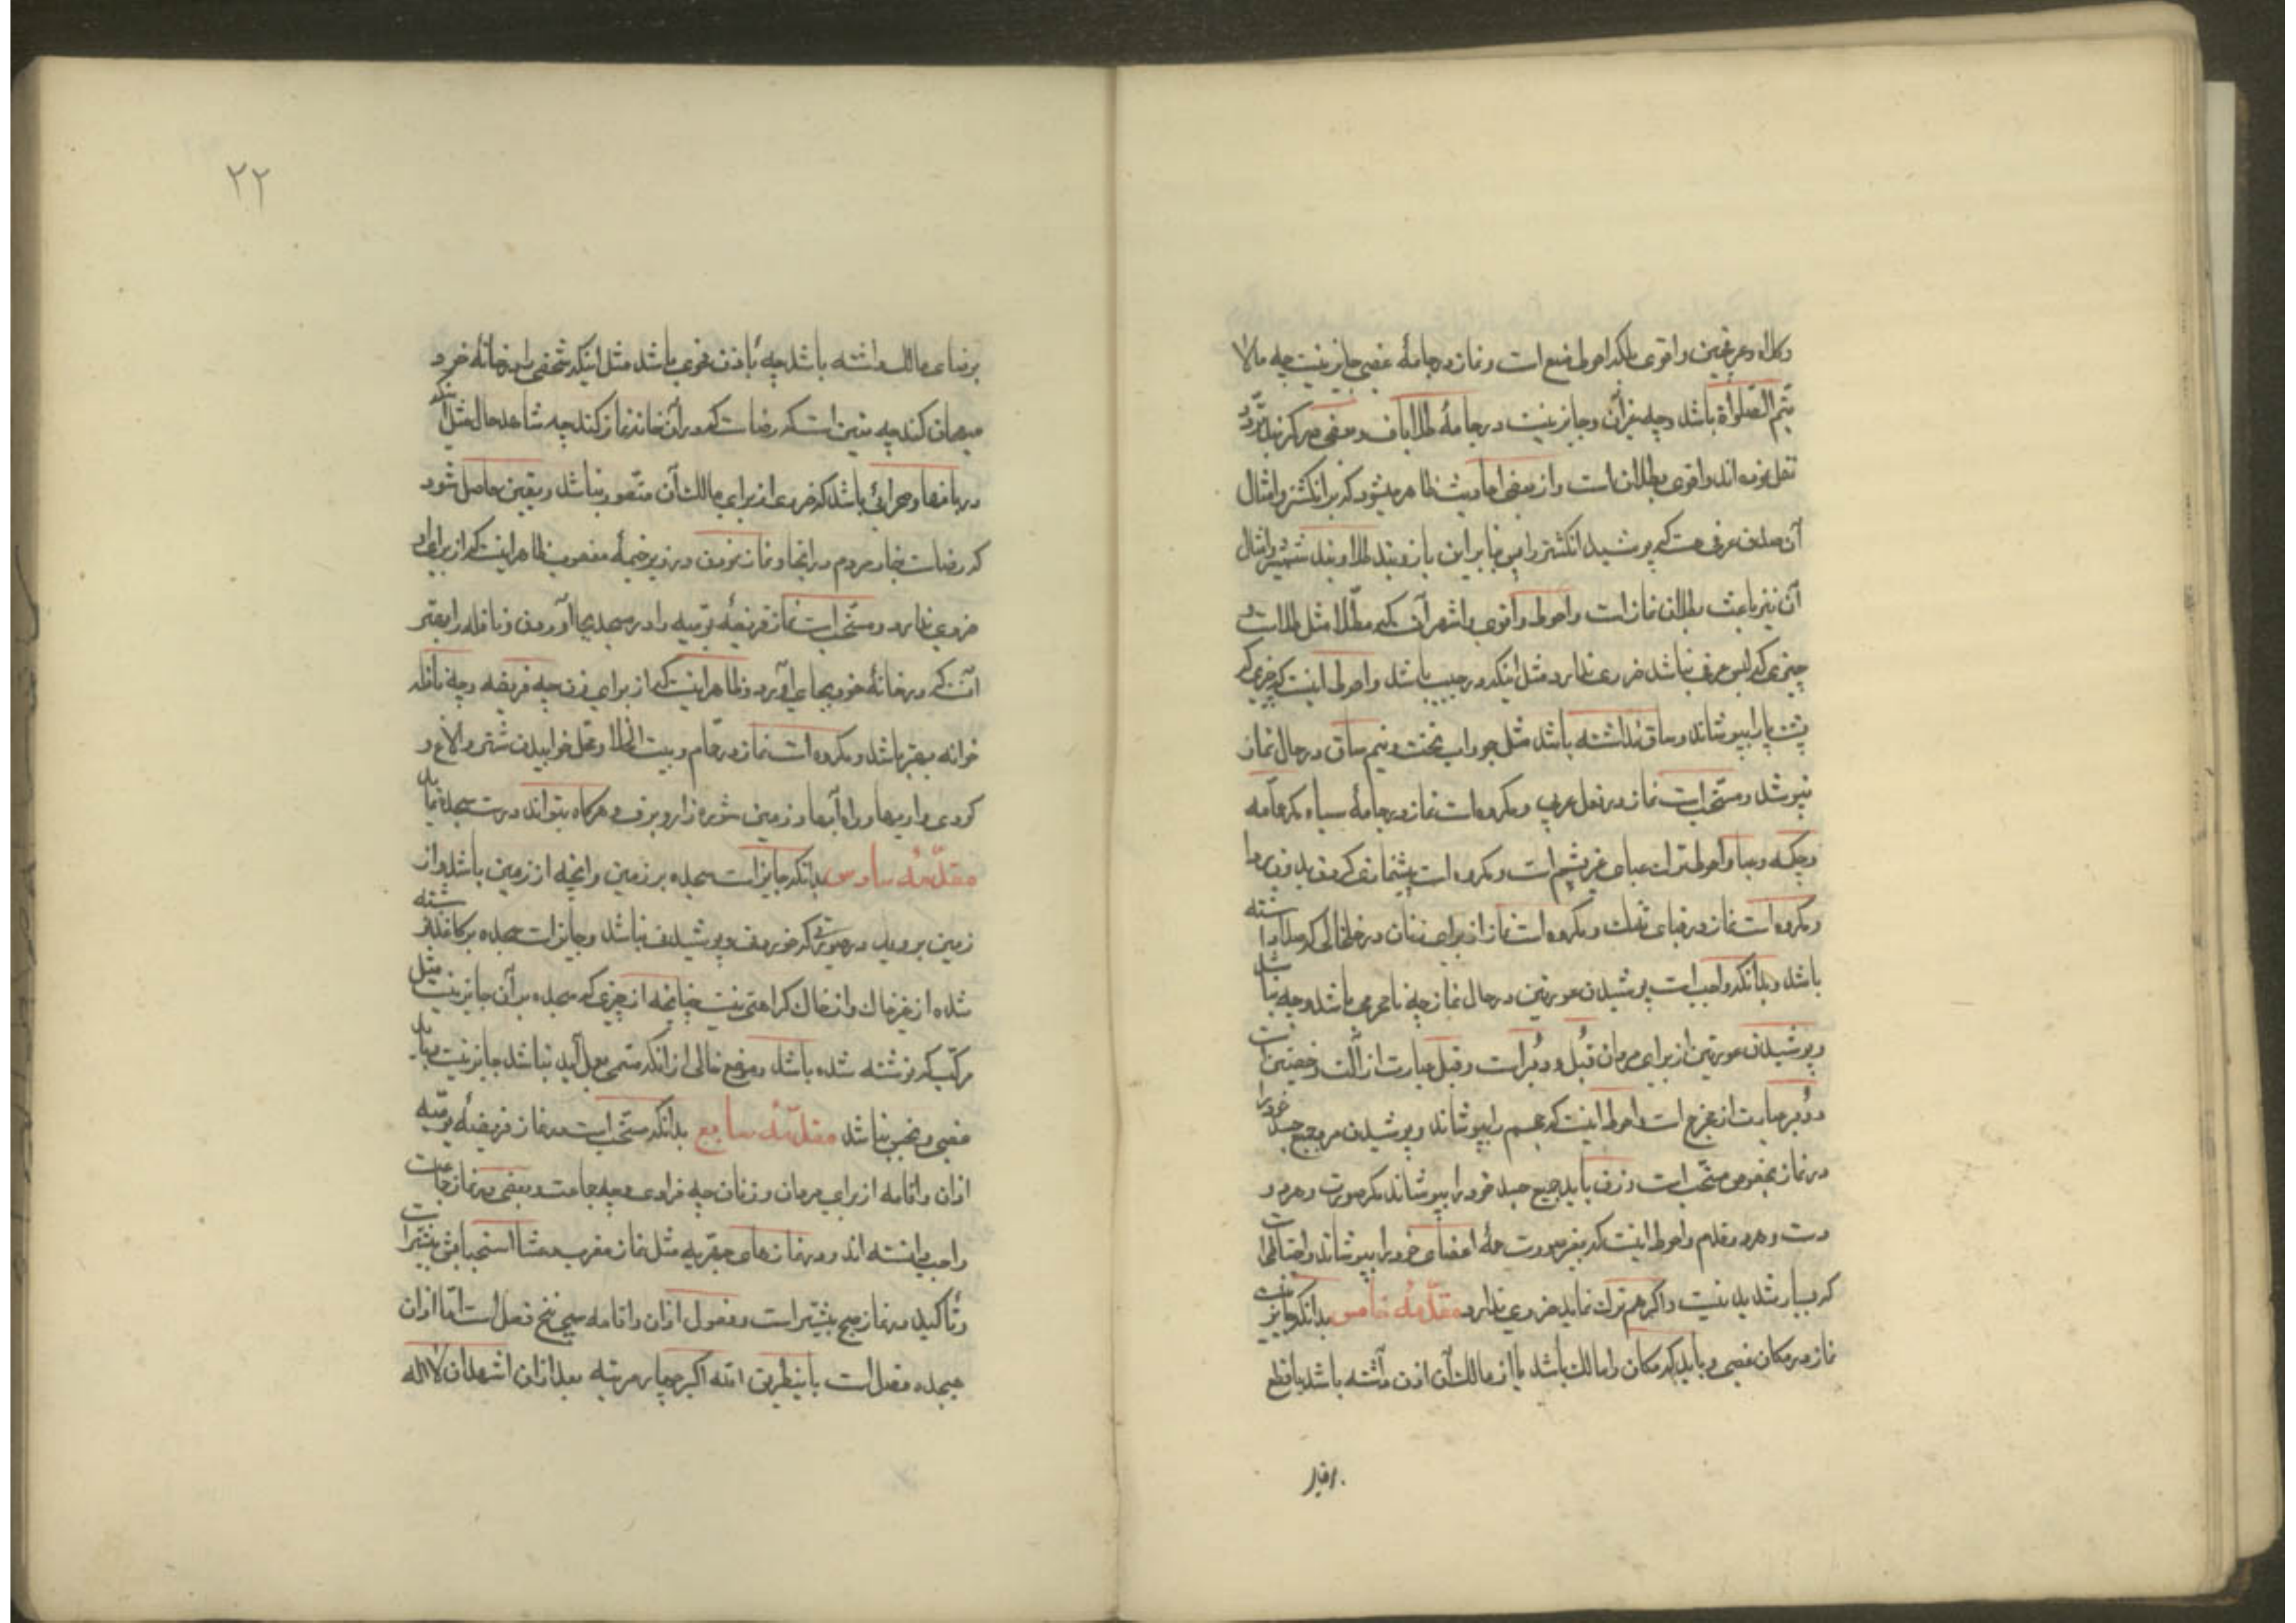 وکلاه وعرقچین واقوی بلکه احوط منع است ونماز در جامهٔ غصبی جایز نیست چه مالا
یتم الصلوة باشد وچه غیر آن وجایز نیست در جامهٔ طلاباف وبعضی در کمربند تردد
نقل نموده اند واقوی بطلان است واز بعضی احادیث ظاهر میشود که بر انکشتر وامثال
آن صدق عرفی هست که پوشیده انکشتر را پس بنابراین بازوبند طلا وبند شمشیر وامثال
آن نیز باعث بطلان نماز است واحوط واقوی واشهر آن که مطلّا مثل طلا است و
چیزی که لبس عرفی نباشد ضرری ندارد مثل اینکه در جیب باشد واحوط اینست که چیزی که
پشت پا را بپوشاند وساق نداشته باشد مثل جوراب تخت ونیم ساق در حال نماز
نپوشد ومستحب است نماز در نعل عربی ومکروه است نماز در جامهٔ سیاه مکر عمامه
وچکمه وعبا واحوط ترک عبای غیر پشم است ومکروه است پیشنمازی کردن بدون ردا
ومکروه است نماز در قبای تنک ومکروه است نماز از برای زنان در خلخالی که صدا داشته
باشد وبدانکه واجب است پوشیدن عورتین در حال نماز چه نامحرمی باشد وچه نباشد
وپوشیدن عورتین از برای مردان قُبل ودُبر است وقبل عبارت از آلت وخصیتین است
ودُبر عبارت از مخرج است واحوط اینست که عجم را بپوشاند وپوشیدن مرد جمیع جسد خود را
در نماز بخصوص مستحب است وزن باید جمیع جسد خود را بپوشاند مکر صورت وهر دو
دست وهر دو قدم واحوط اینست که بغیر صورت همهٔ اعضای خود را بپوشاند واحتیاط است
که بسیار شدید نیست واکر هم ترک نماید ضرری ندارد مقدّمهٔ خامس بدانکه جایز نیست
نماز در مکان غصبی وباید که مکان را مالک باشد یا از مالک آن اذن داشته باشد یا قطع
برضای مالک داشته باشد چه باذن فحوی باشد مثل اینکه شخصی را بخانهٔ خود
میهمان کند چه متیقن است که رضاست که در آن خانه نماز کند چه شاهد حال مثل آنکه
در باغها وصحرائی باشد که ضرری از برای مالک آن متصور نباشد ویقین حاصل شود
که رضاست بنماز مردم در آنجا ونماز نمودن در زیر خیمهٔ مغصوب ظاهر اینست که از برای او
ضرری ندارد ومستحب است نماز فریضهٔ یومیه را در مسجد بجا آوردن ونافله را بهتر
آنست که در خانهٔ خود بجای آورد وظاهر اینست که از برای زن چه فریضه وچه نافله
خوانه بهتر باشد ومکروه است نماز در حمام وبیت الخلا ومحل خوابیدن شتر والاغ و
کودی وادیها وراه آبها وزمین شوره زار وبرف وهرکاه بتواند درست سجده نماید
مقدّمهٔ سادس بدانکه جایز است سجده بر زمین وآنچه از زمین باشد واز
زمین بروید در صورتی که خوردن وپوشیدن نباشد وجایز است سجده بر کاغذ نوشته
شده از غیر خاک واز خاک کراهتی نیست چنانچه از چیزی که سجده بر آن جایز نیست مثل
مرکب که نوشته شده باشد وموضع خالی از آنکه مسمی بعمل آید نباشد جایز نیست وباید
غصبی ونجس نباشد مقدّمهٔ سابع بدانکه مستحب است در نماز فریضهٔ یومیه
اذان واقامه از برای مردان وزنان چه فرادی وچه جماعت وبعضی در نماز جماعت
واجب دانسته اند ودر نمازهای جهریه مثل نماز مغرب وعشا استحبابش بیشتر است
وتأکید در نماز صبح بیشتر است وفصول اذان واقامه سی وپنج فصل است امّا اذان
هیجده فصل است باینطریق اللّه اکبر چهار مرتبه بعد از آن اشهد ان لا اله
برضای
۲۲